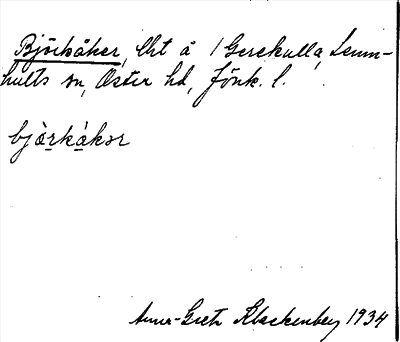 Björkåker, lht å 1 Gerekulla, Lemn-
hults sn, Öster hd, Jönk. l.
bjö̀rkàkər
Anna-Greta Klackenberg 1934